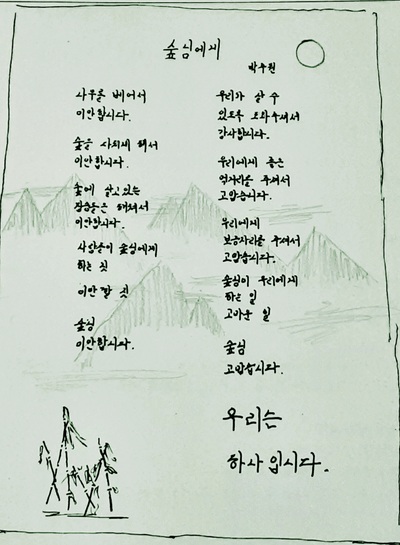 숲님에게
박우원
나무를 베어서
미안합니다.
숲을 사라지게 해서
미안합니다.
숲에 살고있는
짐승들을 해쳐서
미안합니다.
사람들이 숲님에게
하는 짓
미안할 짓
숲님
미안합니다.
우리가 살 수
있도록 도와주셔서
감사합니다.
우리에게 좋은
먹거리를 주셔서
고맙습니다.
우리에게
보금자리를 주셔서
고맙습니다.
숲님이 우리에게
하는 일
고마운 일
숲님
고맙습니다.
우리는
하나입니다.